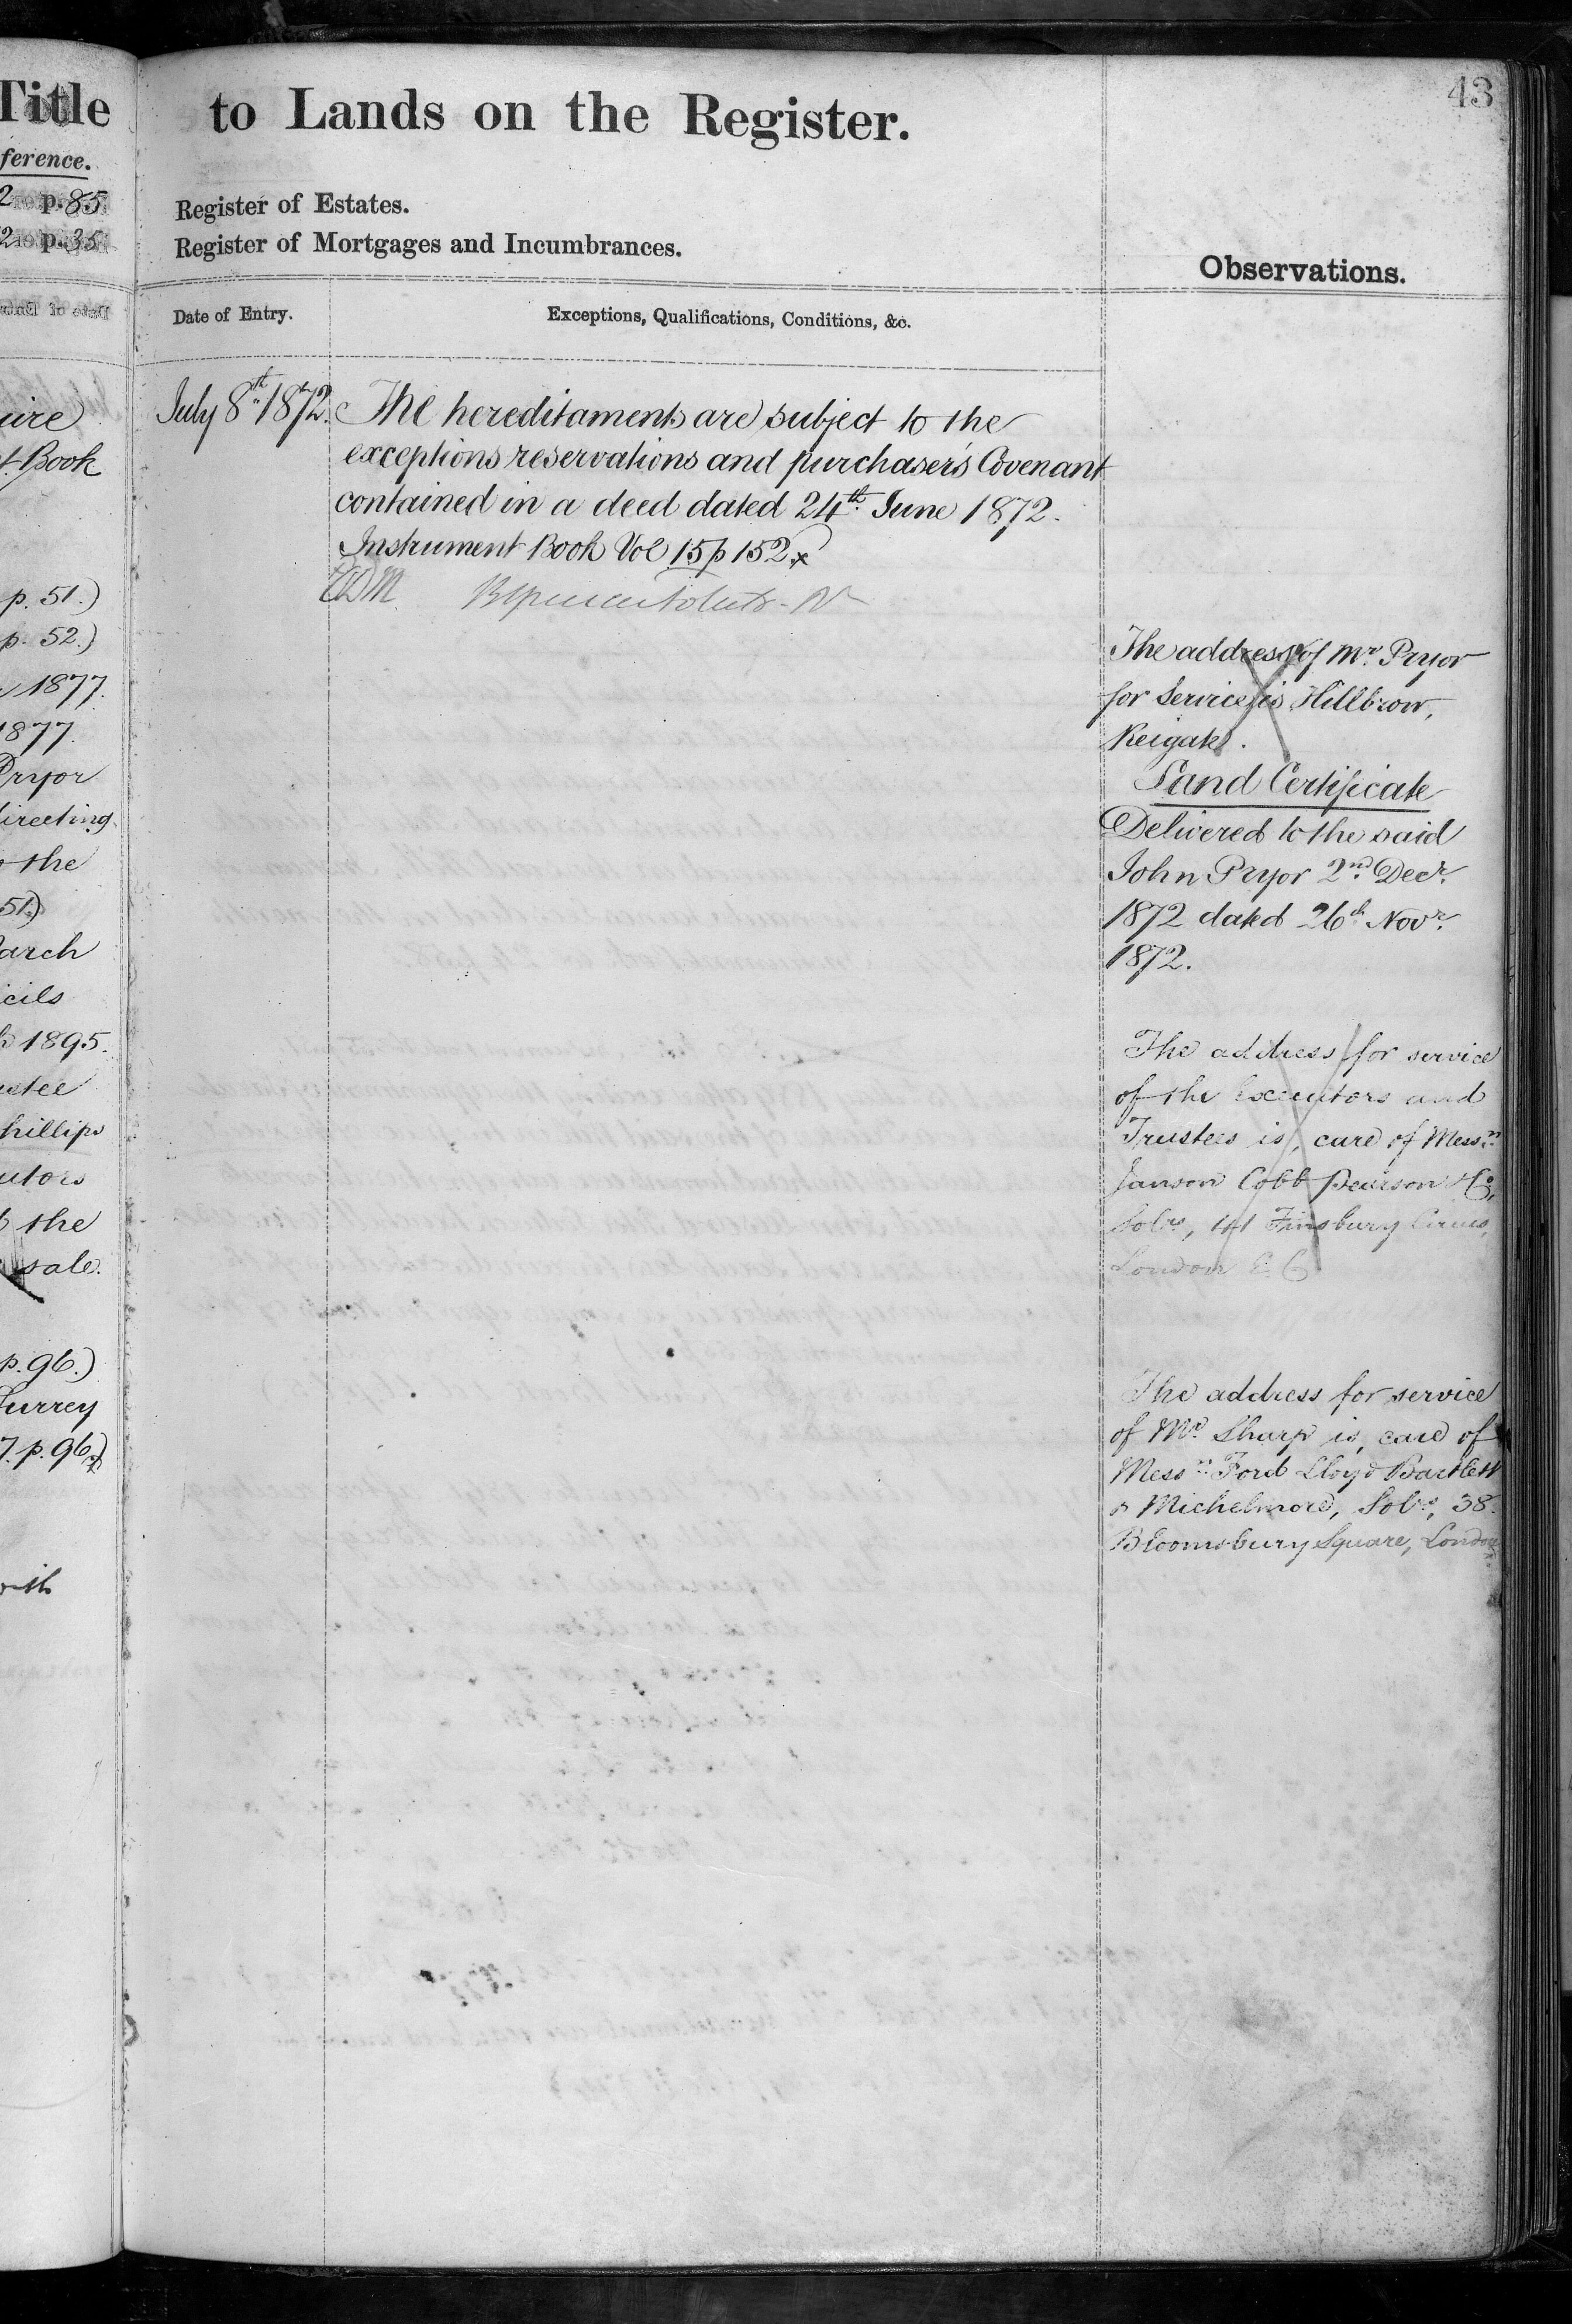 Title
ference.
2 p. 85
2 p. 35
uire
t. Book
p. 51.)
p. 52.)
1877.
1877.
Pryor
directing
the
51.)
arch
icils
1895.
ustee
hillips
utors
the
sale.
p. 96.)
Surrey
7. p. 96.)
43
to Lands on the Register.
Register of Estates.
Register of Mortgages and Incumbrances.
Observations.
Date of Entry. Exceptions, Qualifications, Conditions, &c.
July 8th 1872. The hereditaments are subject to the
exceptions reservations and purchaser's Covenant
contained in a deed dated 24th June 1872.
Instrument Book Vol 15 p 152
The address of Mr. Pryor
for Service is Hillbrow,
Reigate.
Land Certificate
Delivered to the said
John Pryor 2nd Decr.
1872 dated 26th Novr.
1872.
The address for service
of the Executors and
Trustees is, care of Messrs.
Janson Cobb Pearson & Co,
Solrs, 41 Finsbury Circus,
London E. C.
The address for service
of Mr. Sharp is, care of
Messrs. Ford Lloyd Bartlett
& Michelmore, Solrs, 38.
Bloomsbury Square, London